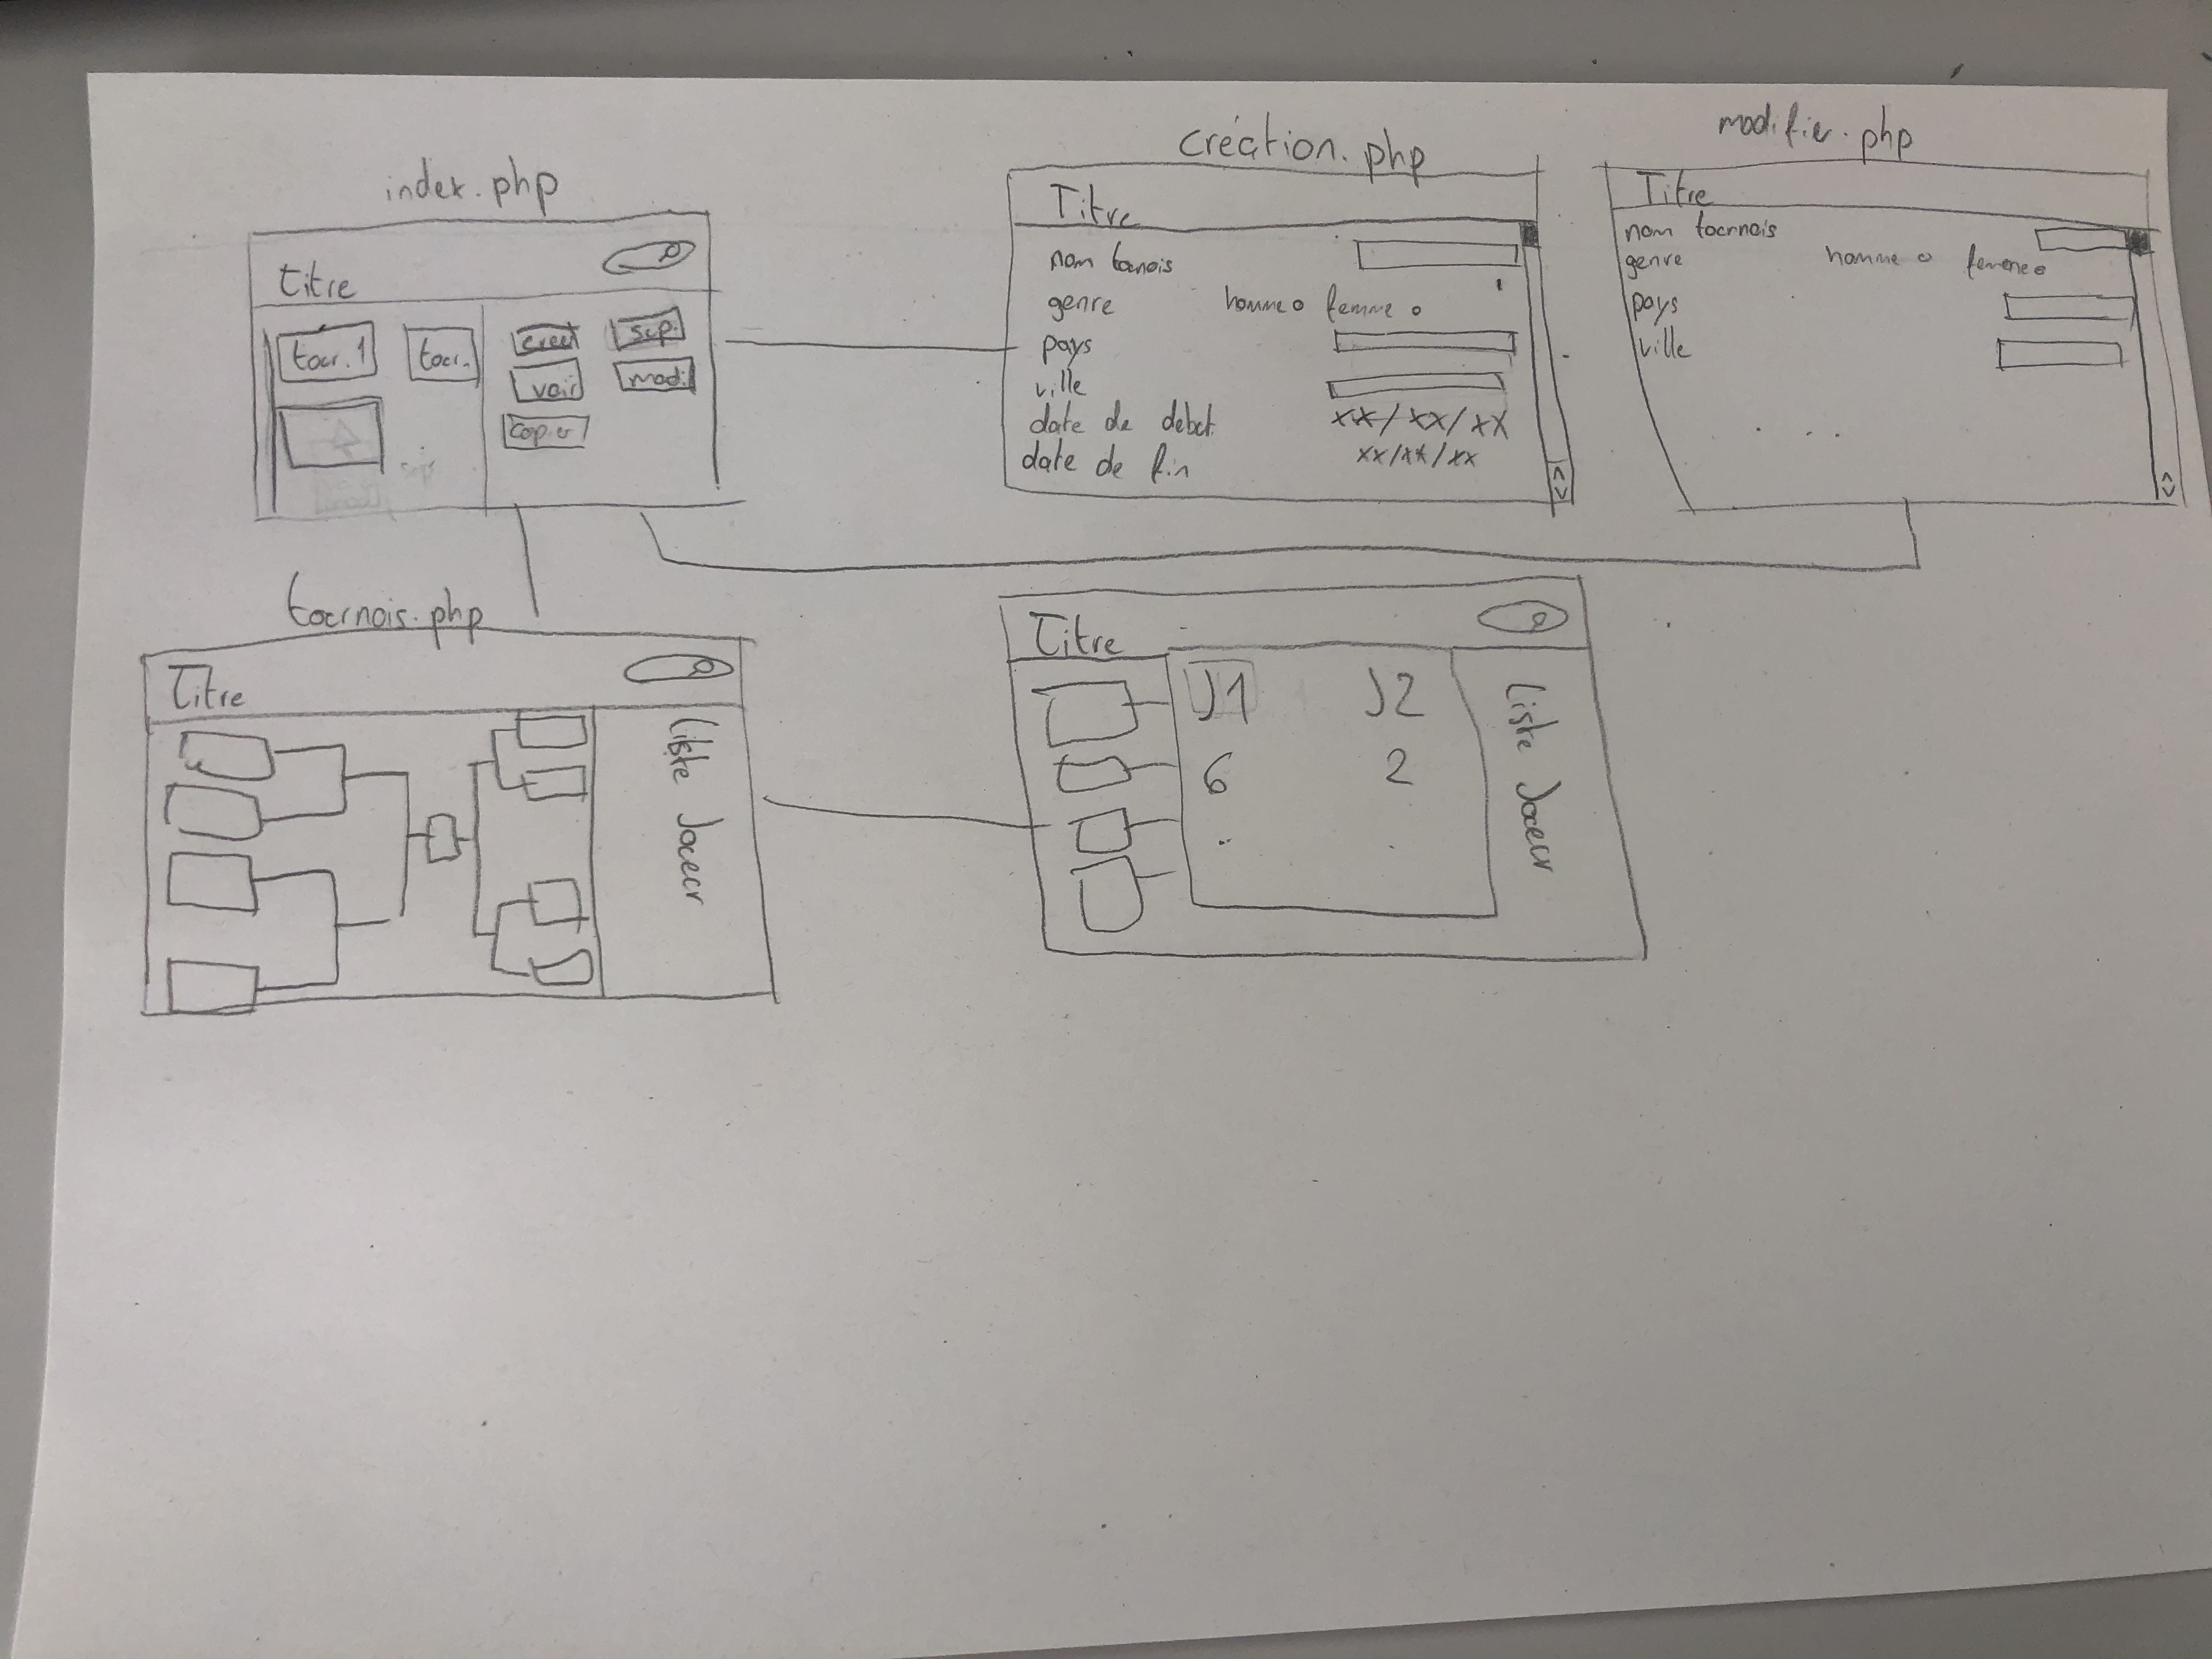 index.php
Titre
tour.1
tour.
sup.
voir
modi
copier
création.php
Titre
nom tournois
genre homme femme
pays
ville
date de debut xx/xx/xx
date de fin xx/xx/xx
modifier.php
Titre
nom tournois
genre homme femme
pays
ville
. . .
tournois.php
Titre
Liste Joueur
Titre
J1 J2
6 2
. .
Liste Joueur